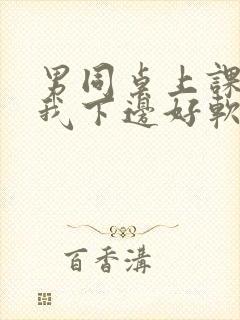 男同桌上課
我下邊好軟
百香溝